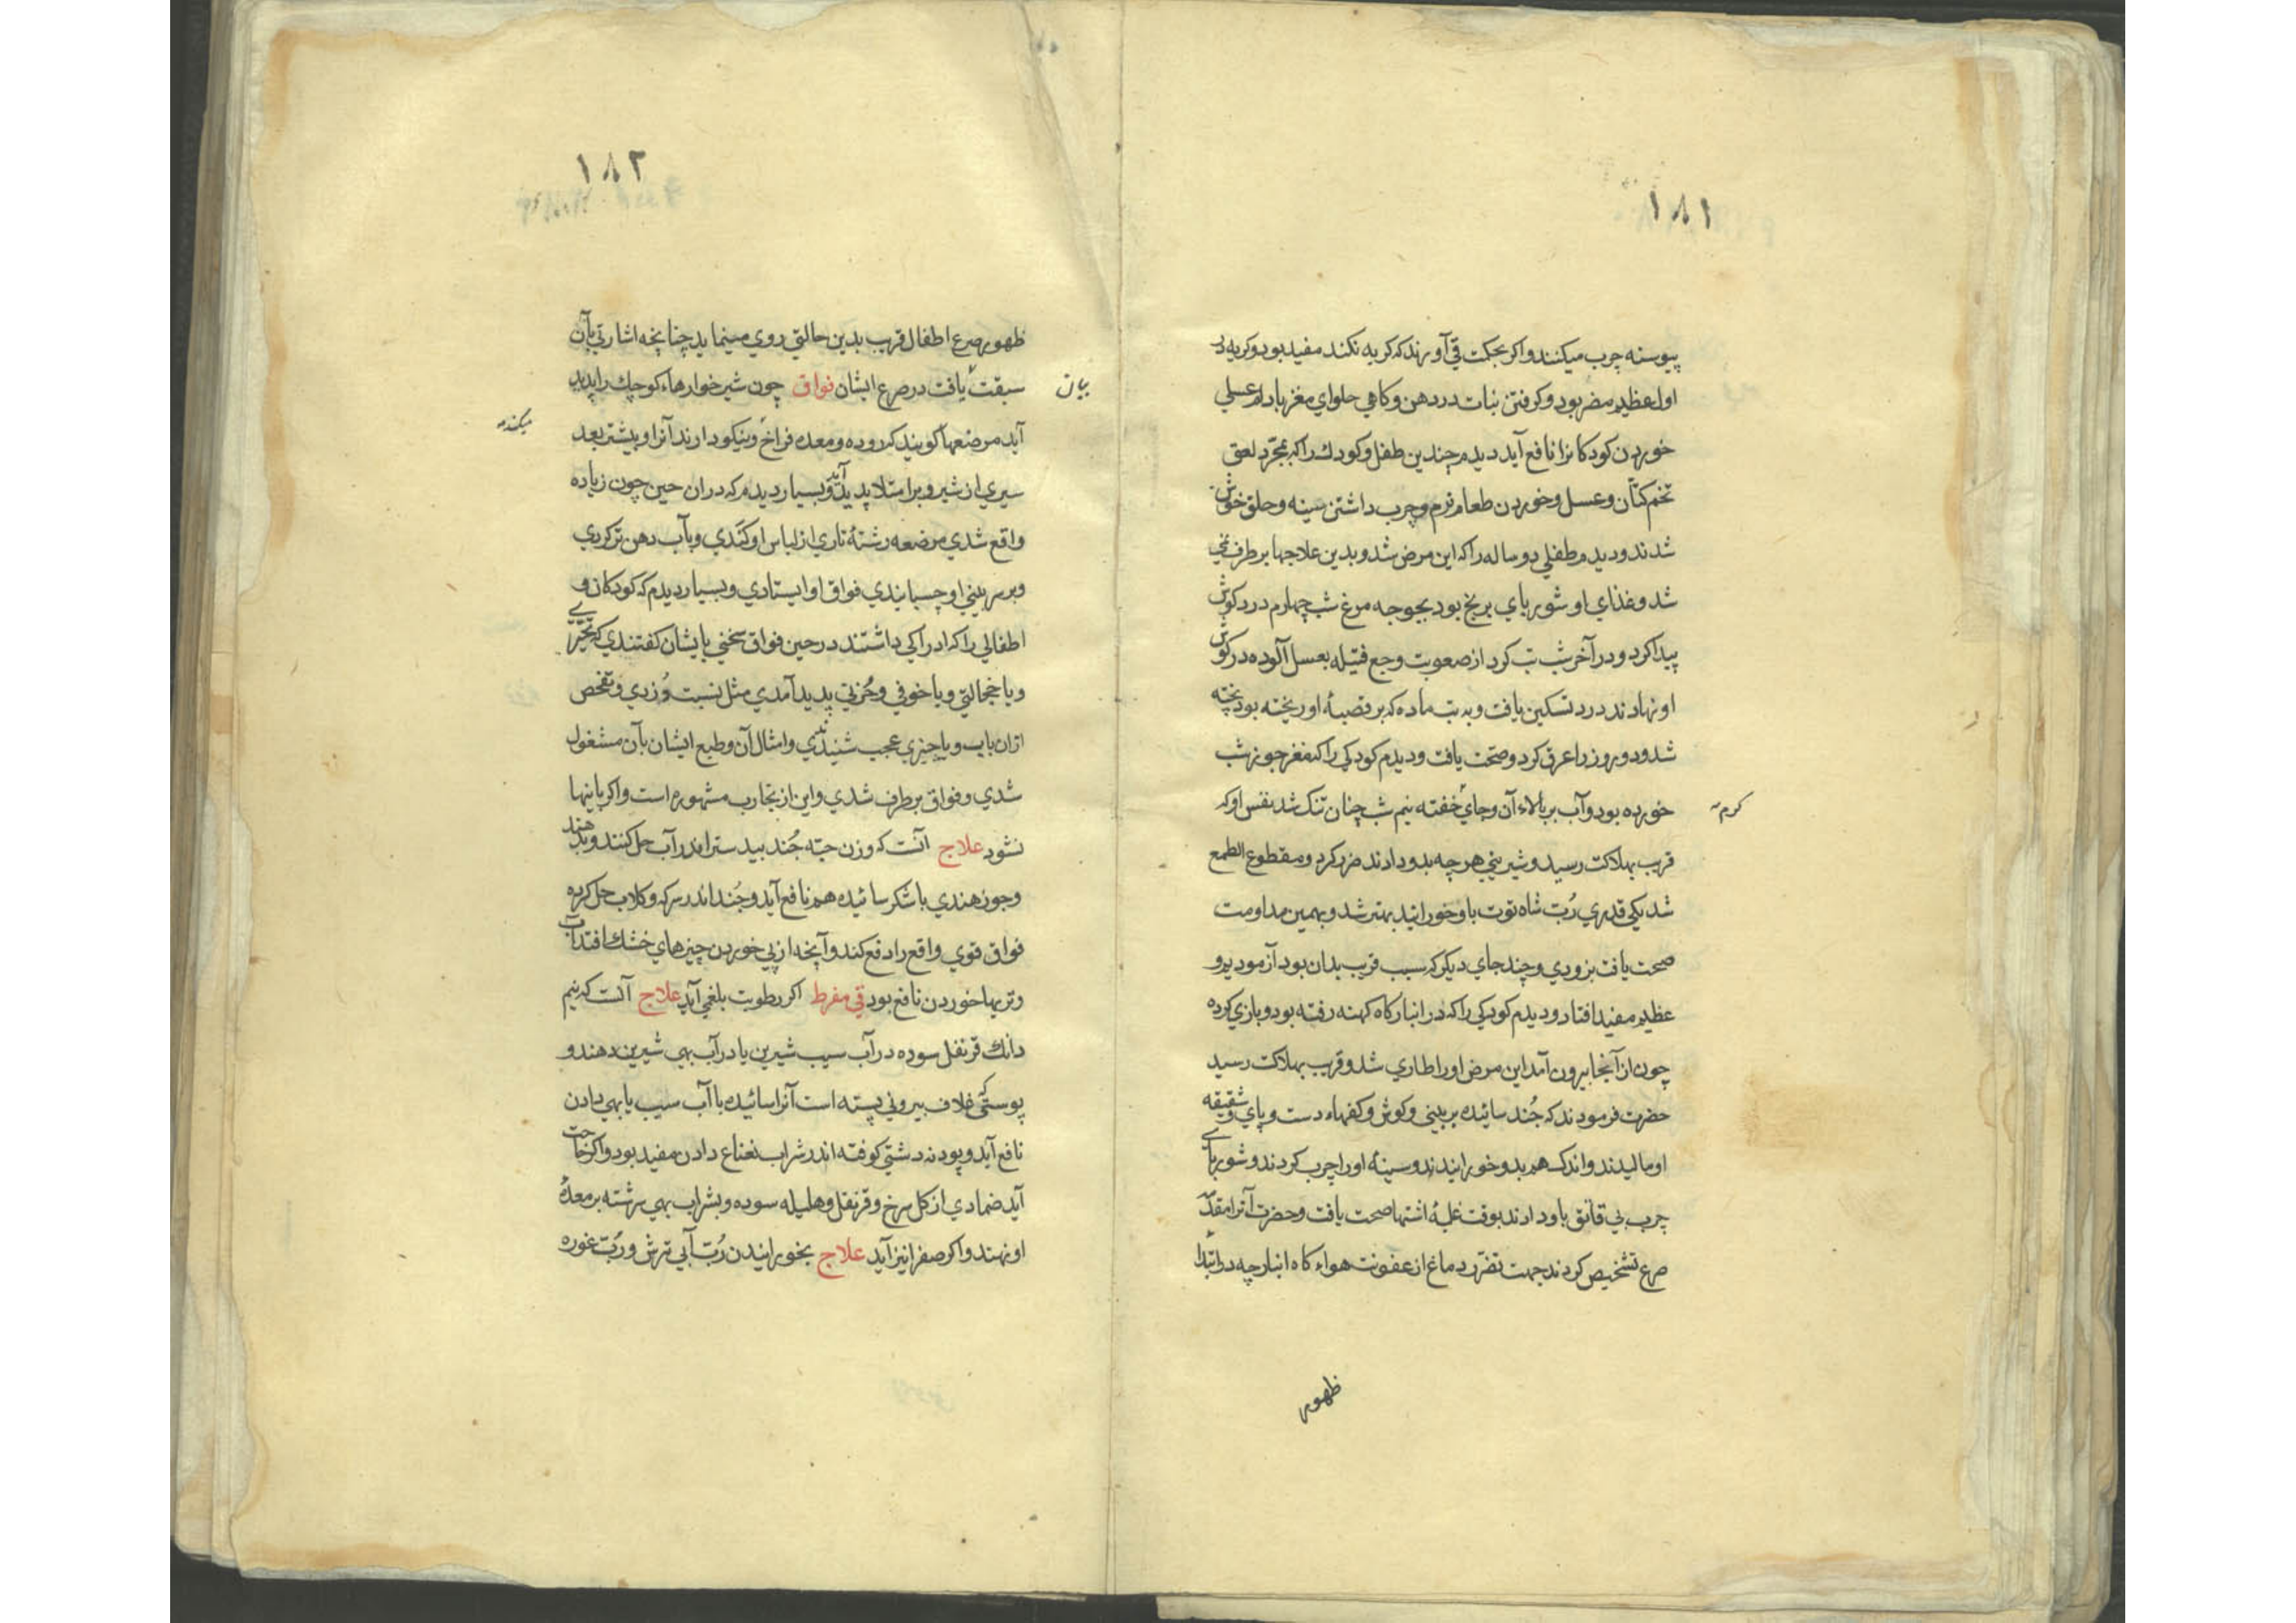 ۱۸۱
پیوسته چرب میکنند واکر بحکمت قی آورند که کریه نکند مفید بود وکریه در
اول عظیم مضر بود وکرفتن نبات در دهن وکاهی حلوای مغز بادام عسلی
خوردن کودکانرا نافع آید دیدم چندین طفل وکودك را که بمجرّد لعق
تخم کتّان وعسل وخوردن طعام نرم وچرب داشتن سینه وحلق خوش
شدند ودیدم طفلی دو ساله را که این مرض شد وبدین علاجها برطرف نمی
شد وغذای او شوربای برنج بود بجوجه مرغ شب چهارم درد کوش
پیدا کرد ودر آخر شب تب کرد از صعوبت وجع فتیله بعسل آلوده در کوش
او نهادند درد تسکین یافت وبه تب ماده که بر قصبهٔ او ریخته بود پخته
شد ودو روز را عرق کرد وصحّت یافت ودیدم کودکی را که مغز جوز شب
خورده بود وآب بر بالاء آن وجای خفته نیم شب چنان تنك شد نفس او که
کرم
قریب بهلاکت رسید وشیرینی هرچه بدو دادند ضرر کرد ومقطوع الطمع
شد یکی قدری رُبّ شاه توت باو خورانید بهتر شد وبهمین مداومت
صحت یافت بزودی وچند جای دیکر که سبب قریب بدان بود آزمودیم و
عظیم مفید افتاد ودیدم کودکی را که در انبار کاه کهنه رفته بود وبازی کرده
چون از آنجا بیرون آمد این مرض او را طاری شد وقریب بهلاکت رسید
حضرت فرمودند که جُند سائیده بر بینی وکوش وکفهاء دست وپای وشقیقه
او مالیدند واندك هم بدو خورانیدند وسینهٔ او را چرب کردند وشوربای
چرب بی قاتق باو دادند بوقت غلبهٔ اشتها صحت یافت وحضرت آنرا مقدّمهٔ
صرع تشخیص کردند جهت تضرّر دماغ از عفونت هواء کاه انبار چه در ابتدا
ظهور
۱۸۲
ظهور صرع اطفال قریب بدین حالتی روی مینماید چنانچه اشارتی بآن
سبقت یافت در صرع ایشان فواق چون شیر خوارهاء کوچك را پدید
بیان
آید مرضعها کویند که روده ومعده فراخ ونیکو دارند آنرا وبیشتر بعد
میکند
سیری از شیر وبر امتلا پدید آید وبسیار دیدم که در ان حین چون زیاده
واقع شدی مرضعه رشتهٔ تاری از لباس او کندی وبآب دهن تر کردی
وبر سر بینی او چسبانیدی فواق او ایستادی وبسیار دیدم که کودکان و
اطفالی را که ادراکی داشتند در حین فواق سخنی بایشان کفتندی که تحیّری
ویا خجالتی ویا خوفی وحُزنی پدید آمدی مثل نسبت دُزدی وتفحص
ازان بابت ویا چیزی عجیب شنیدندی وامثال آن وطبع ایشان بآن مشغول
شدی وفواق برطرف شدی واین از تجارب مشهوره است واکر باینها
نشود علاج آنست که وزن حبّه جُند بیدستر اندر آب حل کنند وبدهند
وجوز هندی با شکر سائیده هم نافع آید وجُند اندر سرکه وکلاب حل کرده
فواق قوی واقع را دفع کند وآنچه از پی خوردن چیزهای خشك افتد آب
وتریها خوردن نافع بود قی مفرط اکر رطوبت بلغمی آید علاج آنست که نیم
دانك قرنفل سوده در آب سیب شیرین یا در آب بهی شیرین دهند و
پوستی که غلاف بیرونی پسته است آنرا سائیده با آب سیب یا بهی دادن
نافع آید وپودنه دشتی کوفته اندر شراب نعناع دادن مفید بود واکر حاجت
آید ضمادی از کل سرخ وقرنفل وهلیله سوده وبشراب بهی سرشته بر معدهٔ
او نهند واکر صفرا نیز آید علاج بخورانیدن رُبّ آبی ترش ورُبّ غوره